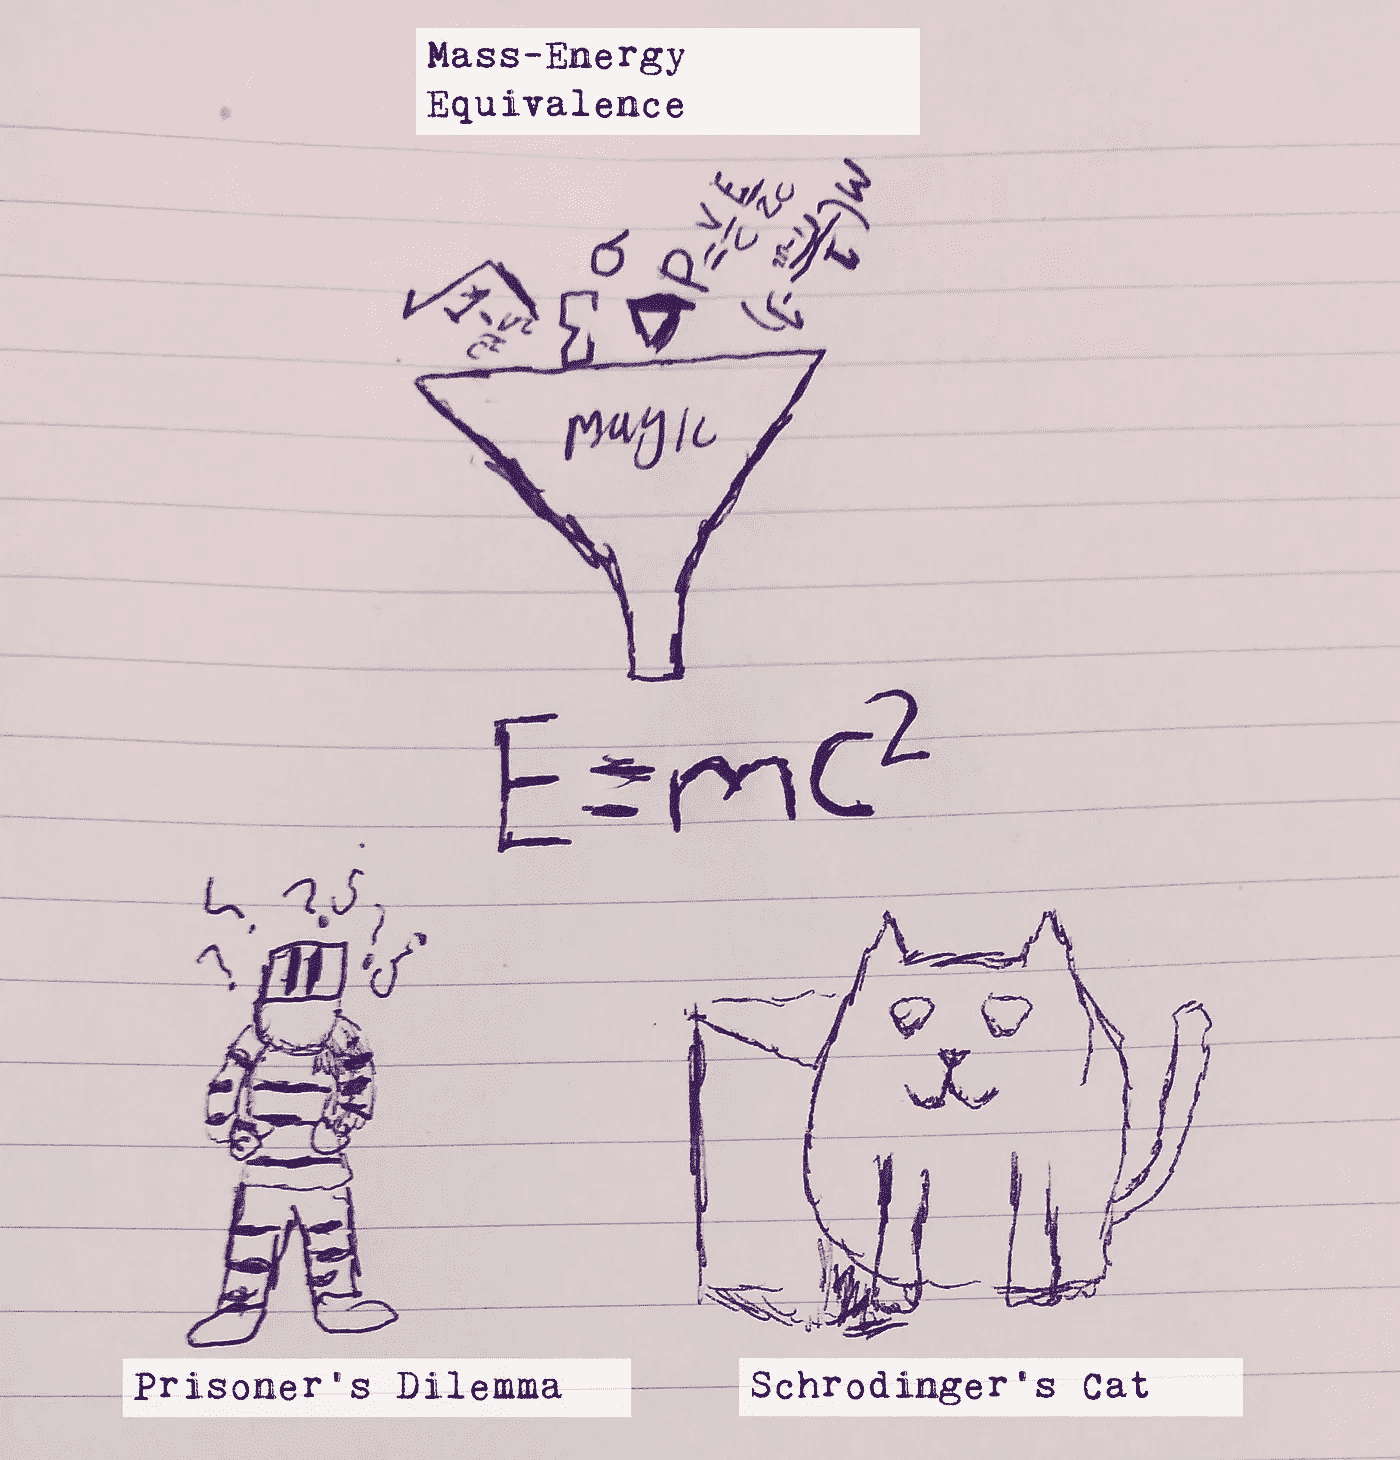 Mass-Energy
Equivalence
magic
E=mc²
Prisoner's Dilemma
Schrodinger's Cat